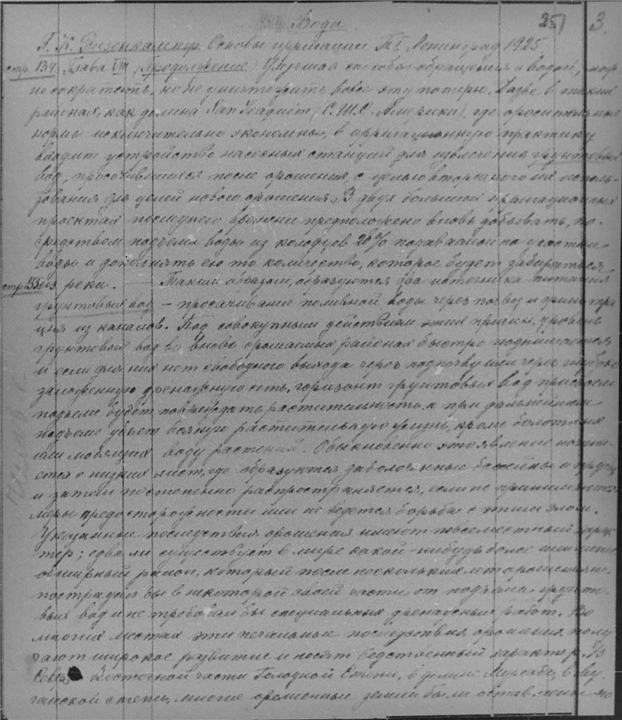 Вода. 251 3.
Г. К. Ризенкампф. Основы ирригации Т I, Ленинград 1925
стр. 134 Глава VIII (продолжение) Улучшая способы обращения с водой, мож-
но сократить, но не уничтожить вовсе эту потерю. Даже в таких
районах, как долина San Joaquin (С.Ш.С. Америки), где оросительные
нормы исключительно экономны, в ирригационную практику
входит устройство насосных станций для извлечения грунтовых
вод, просочившихся после орошения, с целью вторичного их исполь-
зования для целей нового орошения. В двух больших ирригационных
проектах последнего времени предположено вновь добывать, по-
средством подъема воды из колодцев 20% подаваемой на участки
воды и дополнять ею то количество, которое будет забираться
стр. 135 из реки. Таким образом, образуются два источника питания
грунтовых вод — просачивание поливной воды через почву и фильтра-
ция из каналов. Под совокупным действием этих причин, уровень
грунтовых вод в вновь орошаемых районах быстро поднимается
и если для них нет свободного выхода через подпочву или через глубоко
заложенную дренажную сеть, горизонт грунтовых вод при своем
подъеме будет повреждать растительность, а при дальнейшем
подъеме убьет всякую растительную жизнь, кроме болотных
или любящих воду растений. Обыкновенно это явление начина-
ется с низких мест, где образуются заболоченные бассейны и пруды
и затем постепенно распространяется, если не принимаются
меры предосторожности или не ведется борьбы с этим злом.
Указанные последствия орошения имеют повсеместный харак-
тер; едва ли существует в мире какой-нибудь более или менее
обширный район, который после нескольких лет орошения не
пострадал бы в некоторой своей части от подъема грунто-
вых вод и не требовал бы специальных дренажных работ. Во
многих местах эти печальные последствия орошения полу-
чают широкое развитие и носят бедственный характер. В
Северо-Восточной части Голодной Степи, в долине Мургаба, в Му-
ганской степи, многие орошенные земли были оставлены